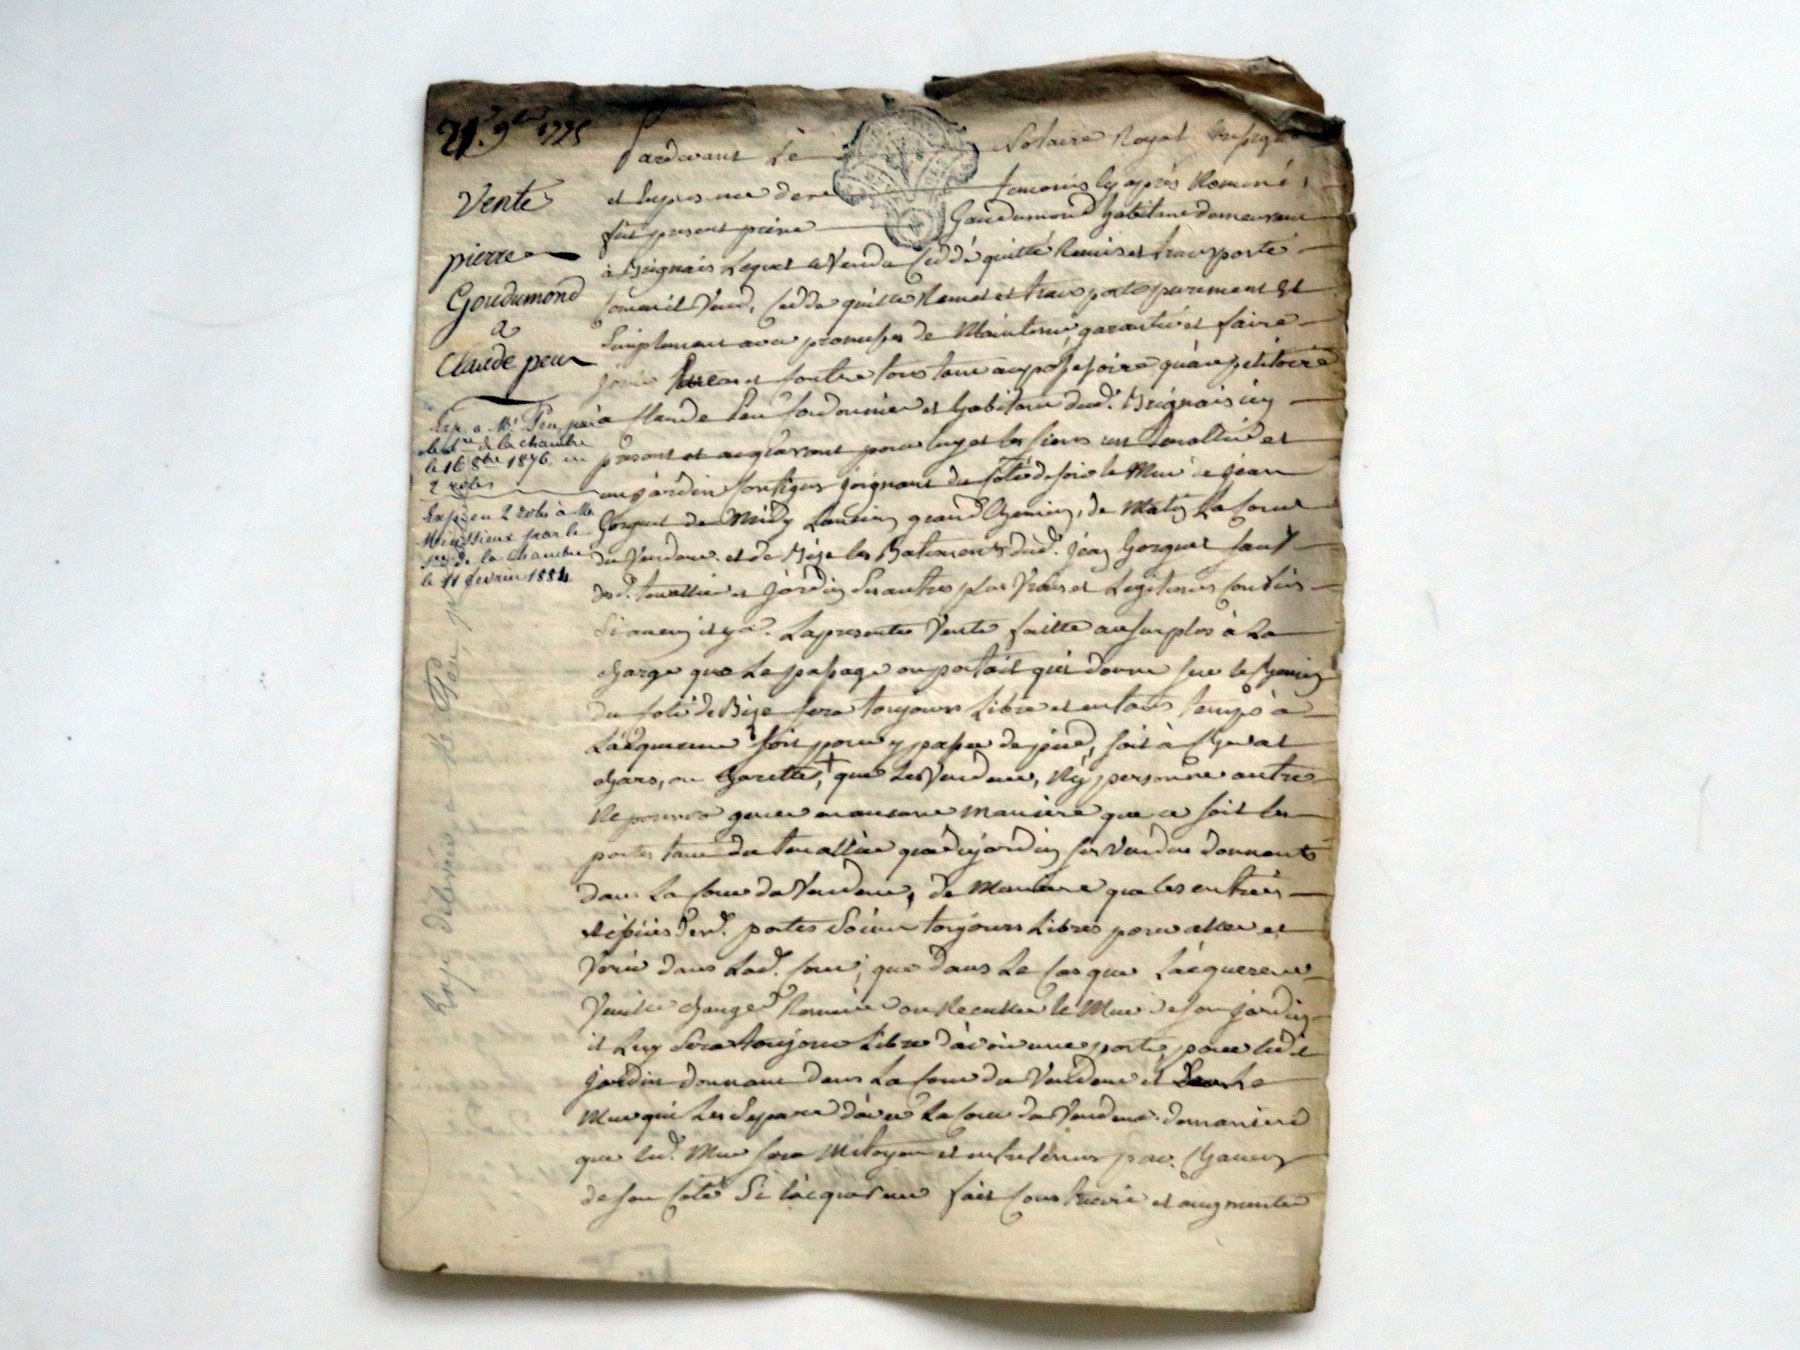 21. 9bre 1775
Vente
pierre
Goudumond
a
Claude peu
Exp. a Mr Peu, par
de la chambre
le 16 8bre 1876, en
2 rôles
Exp. en 2 rôles à Me
par le
de la Chambre
le 11 fevrier 1884
Pardevant Le Notaire Royal
et En presence des temoins cy après Nommés
fut present pierre Goudumond habitant demeurant
à Brignais Lequel a Vendu Ceddé quitté Remis et transporté
Comme il Vend, Cedde quitte Remet et transporte purement Et
Simplement avec promesses de Maintenir, garantir et faire
jouir envers et contre tous tant au possessoire qu'au petitoire
à Claude Peu Cordonnier et habitant dud. Brignais icy
present et acquerant pour luy et les siens un tenallier et
un jardin Contigus joignant du Coté de soir le Mur de jean
Gorguet de Midy L'ancien grand Chemin, de Matin La Cour
du Vendeur et de Bize les Batiments dud. jean Gorguet sauf
desd. tenallier et jardin Ses autres plus Vrais et Legitimes Confins
Si aucun il y a. La presente Vente faitte au surplus à La
charge que Le passage ou portail qui donne sur le Chemin
du Coté de Bize sera toujours Libre et en tous temps à
L'acquereur soit pour y passer de pied, soit à Cheval
chars, ou charette, + que Le Vendeur, Ny personne autre
Ne pourra gener en aucune maniere que ce soit les
portes tant du tenallier que du jardin sus Vendus donnants
dans La Cour du Vendeur, de Maniere que les entrées
desd. portes Soient toujours Libres pour aller et
Venir dans Lad. Cour, que dans Le Cas que L'acquereur
Veuille changer Remuer ou Reculler le Mur de son jardin
il Luy Sera toujours Libre d'avoir une porte pour led.
jardin donnant dans La Cour du Vendeur et Le
Mur qui Les Separe d'avec La Cour du Vendeur de maniere
que led. Mur sera Mitoyen et entretenus par Chacun
de son Coté Si L'acquereur fait Construire et augmenter
Exp. délivrée a Mr Peu